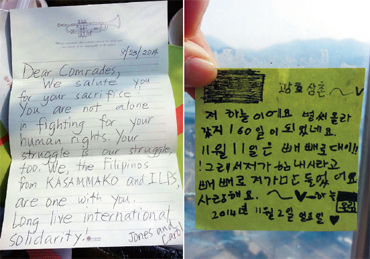 9/25/2014
Dear Comrades,
We salute you
for your sacrifice!
You are not alone
in fighting for your
human rights. Your
struggle is our struggle,
too. We, the Filipinos
from KASAMMAKO and ILPS,
are one with you.
Long live international
solidarity!
Jones and
광호 삼촌
저 하늘이에요 벌써 올라
간지 160일이 되었네요.
11월 11일은 빼빼로데이!!
! 그래서 저가 힘내시라고
빼빼로 저가 만들었어요
사랑해요.
2014년 11월 2일 일요일